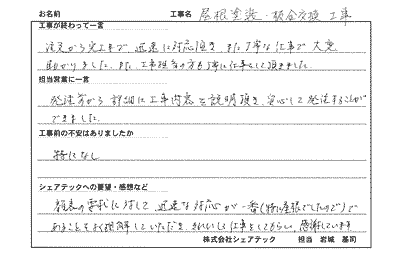 お名前 工事名 屋根塗装・板金交換 工事
工事が終わって一言
注文から完工まで 迅速に対応頂き、また丁寧な仕事で大変
助かりました。また、工事担当の方も丁寧に仕事をして頂きました。
担当営業に一言
発注前から詳細に工事内容を説明頂き、安心して発注することが
できました。
工事前の不安はありましたか
特になし
シェアテックへの要望・感想など
顧客の要求に対して 迅速な対応が一番(特に屋根でしたので)で
あることをよく理解していただき、きれいに仕事をしてもらい、感謝しています
株式会社シェアテック 担当 岩城 基司